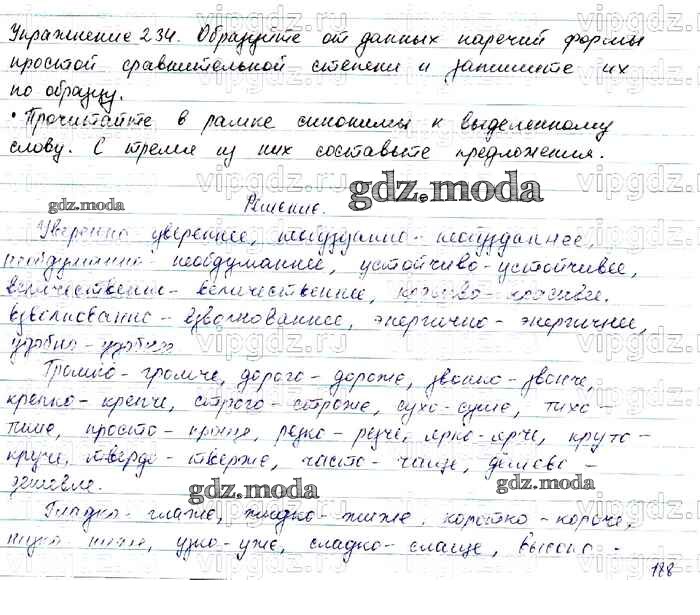 Упражнение 234. Образуйте от данных наречий формы
простой сравнительной степени и запишите их
по образцу.
• Прочитайте в рамке синонимы к выделенному
слову. С тремя из них составьте предложения.
gdz.moda
gdz.moda
Решение.
Уверенно увереннее, необузданно - необузданнее,
необдуманнее, устойчиво - устойчивее,
величественно - величественнее, красиво - красивее.
взволнованно - взволнованнее, энергично - энергичнее,
удобно - удобнее
Громко - громче, дорого - дороже, звонко - звонче,
крепко - крепче, строго - строже, сухо - суше, тихо -
тише, просто - проще, резко - резче, ярко - ярче, круто -
круче, твердо - тверже, часто - чаще, дёшево -
дешевле.
gdz.moda
gdz.moda
Гладко - глаже, жидко - жиже, коротко - короче,
ниже, узко - уже, сладко - слаще, высоко -
188